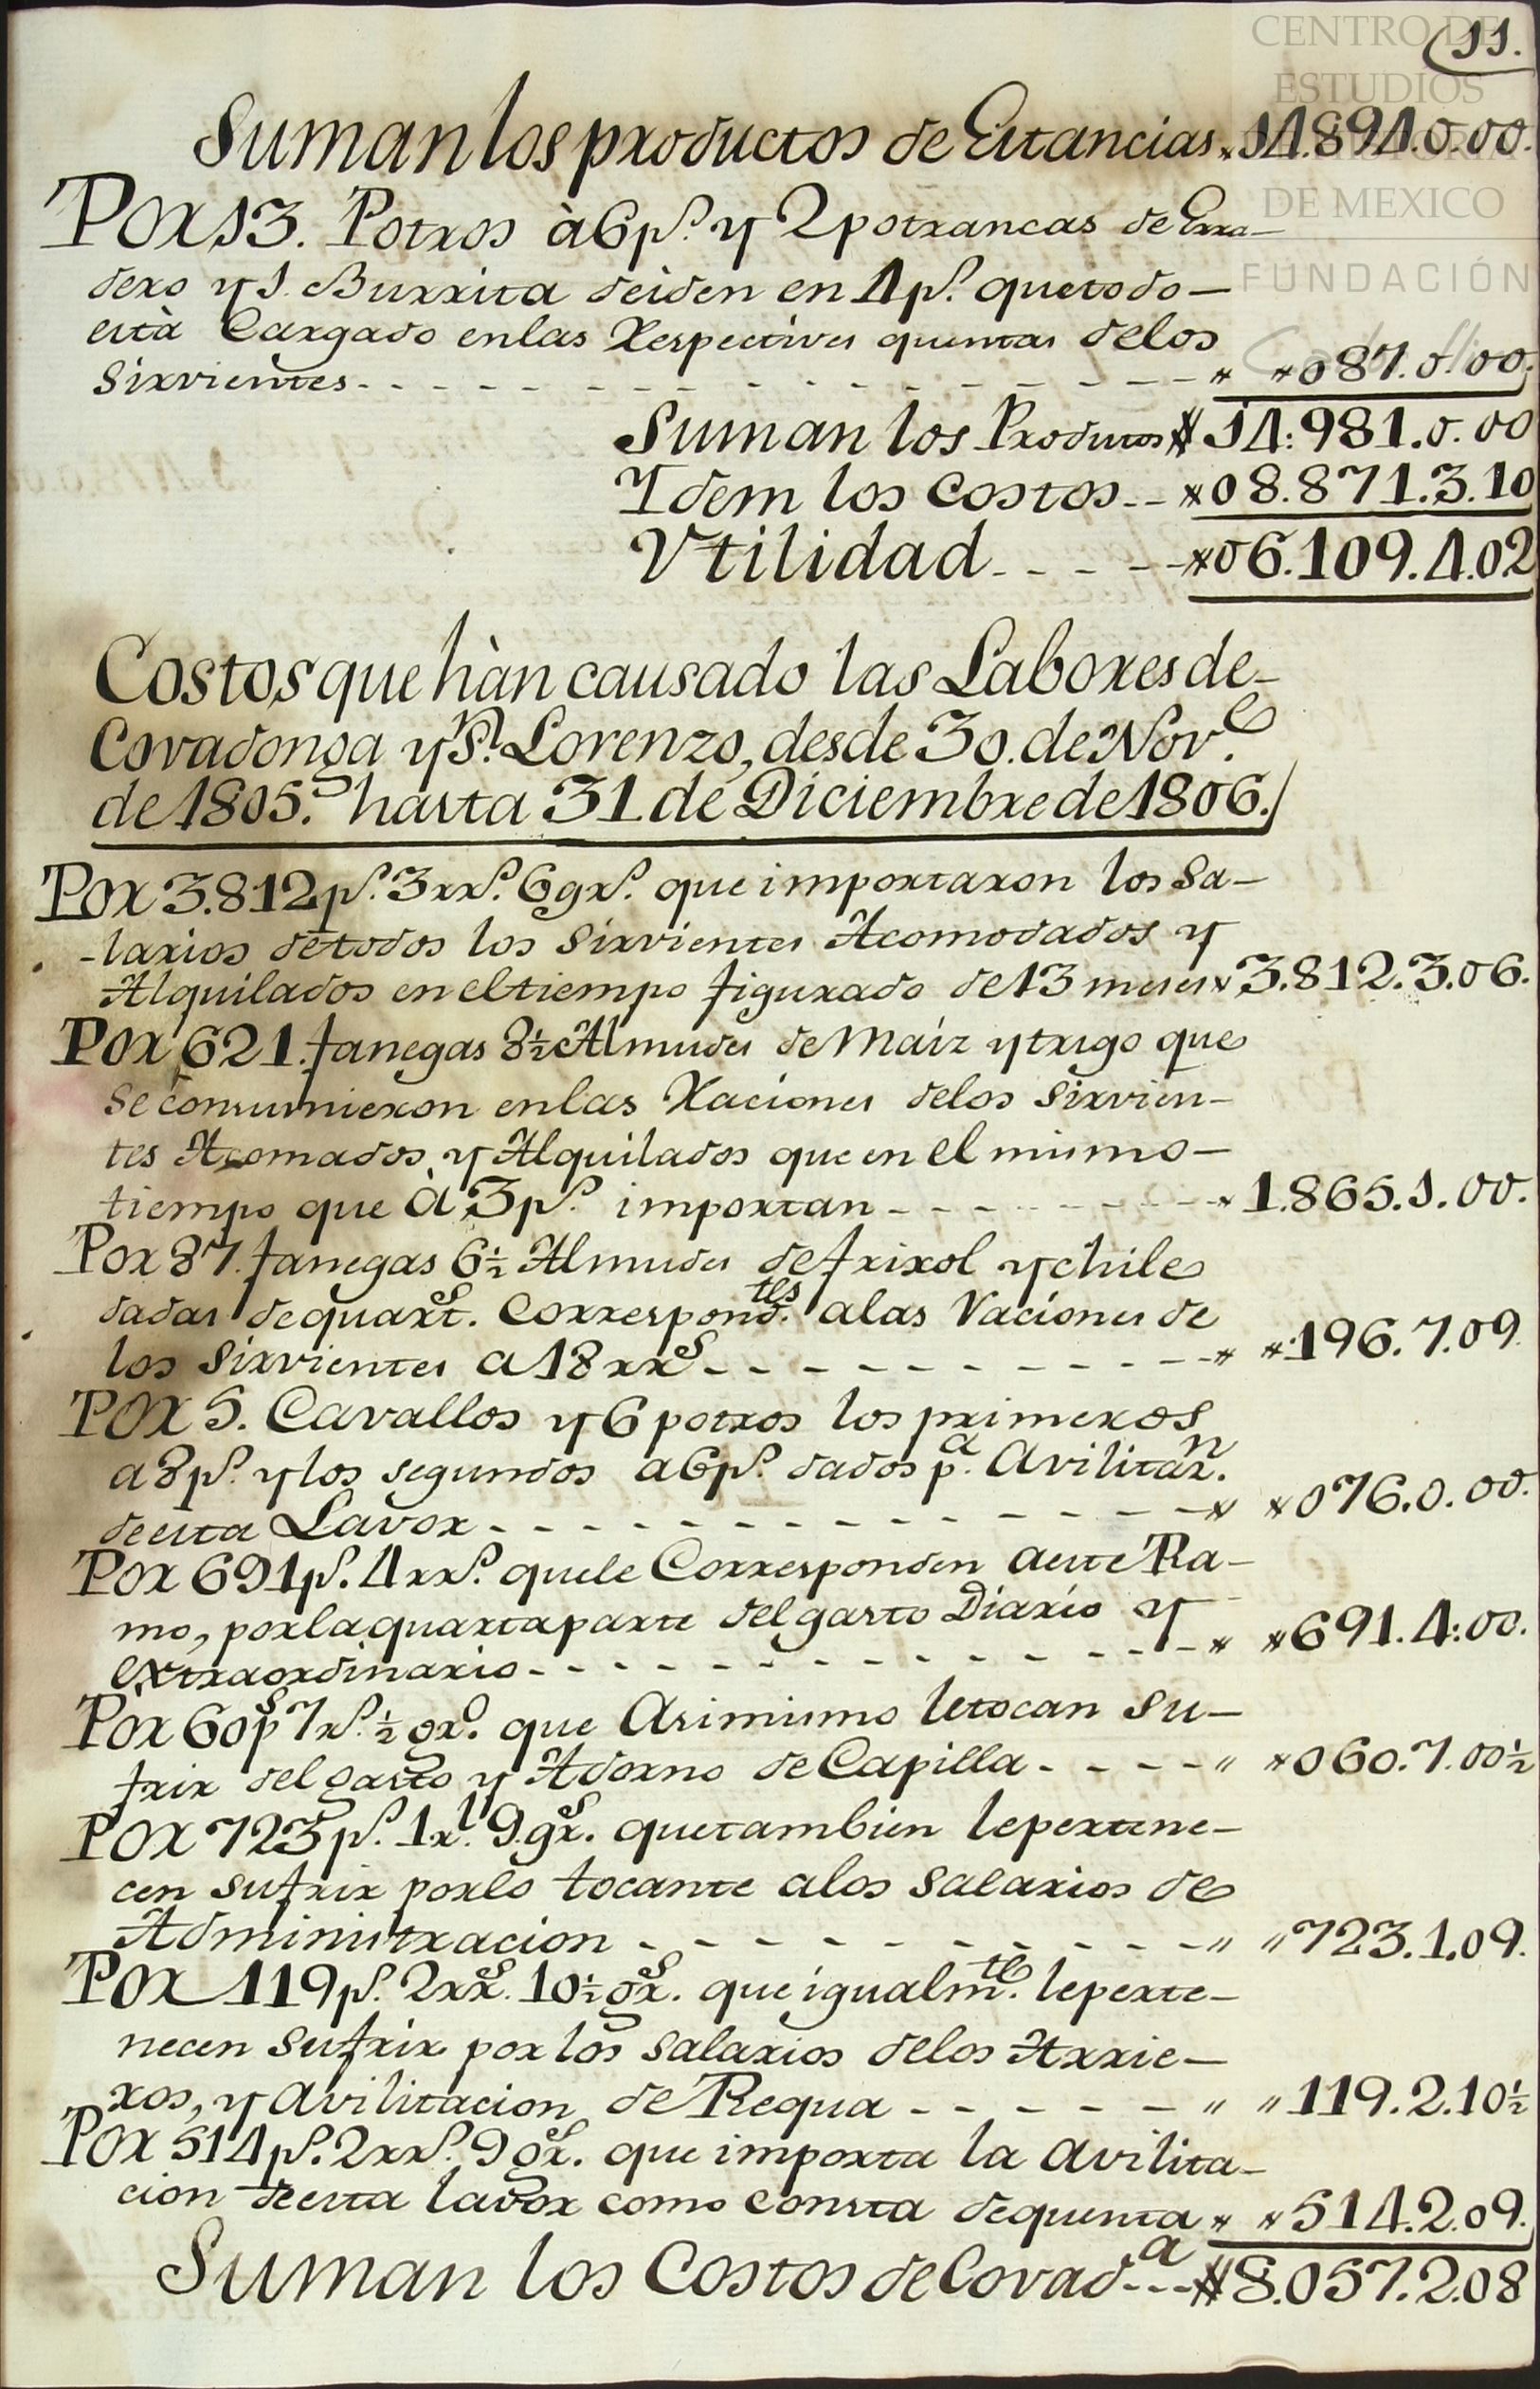 11.
CENTRO DE
ESTUDIOS
DE HISTORIA
DE MEXICO
FUNDACIÓN
Suman los productos de Estancias. 14.894.0.00.
Por 13. Potros à 6 p.s y 2 potrancas de Erra-
dero y 1. Burrita deiden en 4 p.s que todo—
està Cargado en las Respectivas quentas de los
Sirvientes - - - - 087.0.00.
Suman los Productos $ 14:981.0.00
Ydem los Costos - - 08.871.3.10
Vtilidad - - - - 06.109.4.02
Costos que hàn causado las Labores de-
Covadonga y S.n Lorenzo, desde 30. de Nov.e
de 1805. hasta 31 de Diciembre de 1806.
Por 3.812 p.s 3 rr.s 6 gr.s que importaron los Sa-
-larios de todos los Sirvientes Acomodados y
Alquilados en el tiempo figurado de 13 meses 3.812.3.06.
Por 621. fanegas 8½ Almudes de Maíz y trigo que
se consumieron en las Raciones de los Sirvien-
tes Acomados y Alquilados que en el mismo-
tiempo que à 3 p.s importan - - - - 1.865.1.00.
Por 87. fanegas 6½ Almudes de frixol y chile
dadas de quart.s Correspond.tes a las Raciones de
los Sirvientes a 18 rr.s - - - - 196.7.09
Por 5. Cavallos y 6 potros los primeros
a 8 p.s y los segundos a 6 p.s dados p.a Avilitar.n
de esta Lavor - - - - 076.0.00.
Por 691 p.s 4 rr.s que le Corresponden a este Ra-
mo, por la quarta parte del gasto Diario y
extraordinario - - - - 691.4:00.
Por 60 p.s 7 r.s ½ gr.o que Asimismo le tocan su-
frir del gasto y Adorno de Capilla - - - - 060.7.00½
Por 723 p.s 1 r.l 9. gr.s que tambien le pertene-
cen sufrir por lo tocante a los Salarios de
Administracion - - - - 723.1.09.
Por 119 p.s 2 rr.s 10½ gr.s que igualm.te le perte-
necen sufrir por los Salarios de los Arrie-
ros, y Avilitacion de Requa - - - - 119.2.10½
Por 514 p.s 2 rr.s 9 gr.s que importa la Avilita-
cion de esta lavor como consta de quenta 514.2.09.
Suman los Costos de Covad.a - - - $ 8.057.2.08